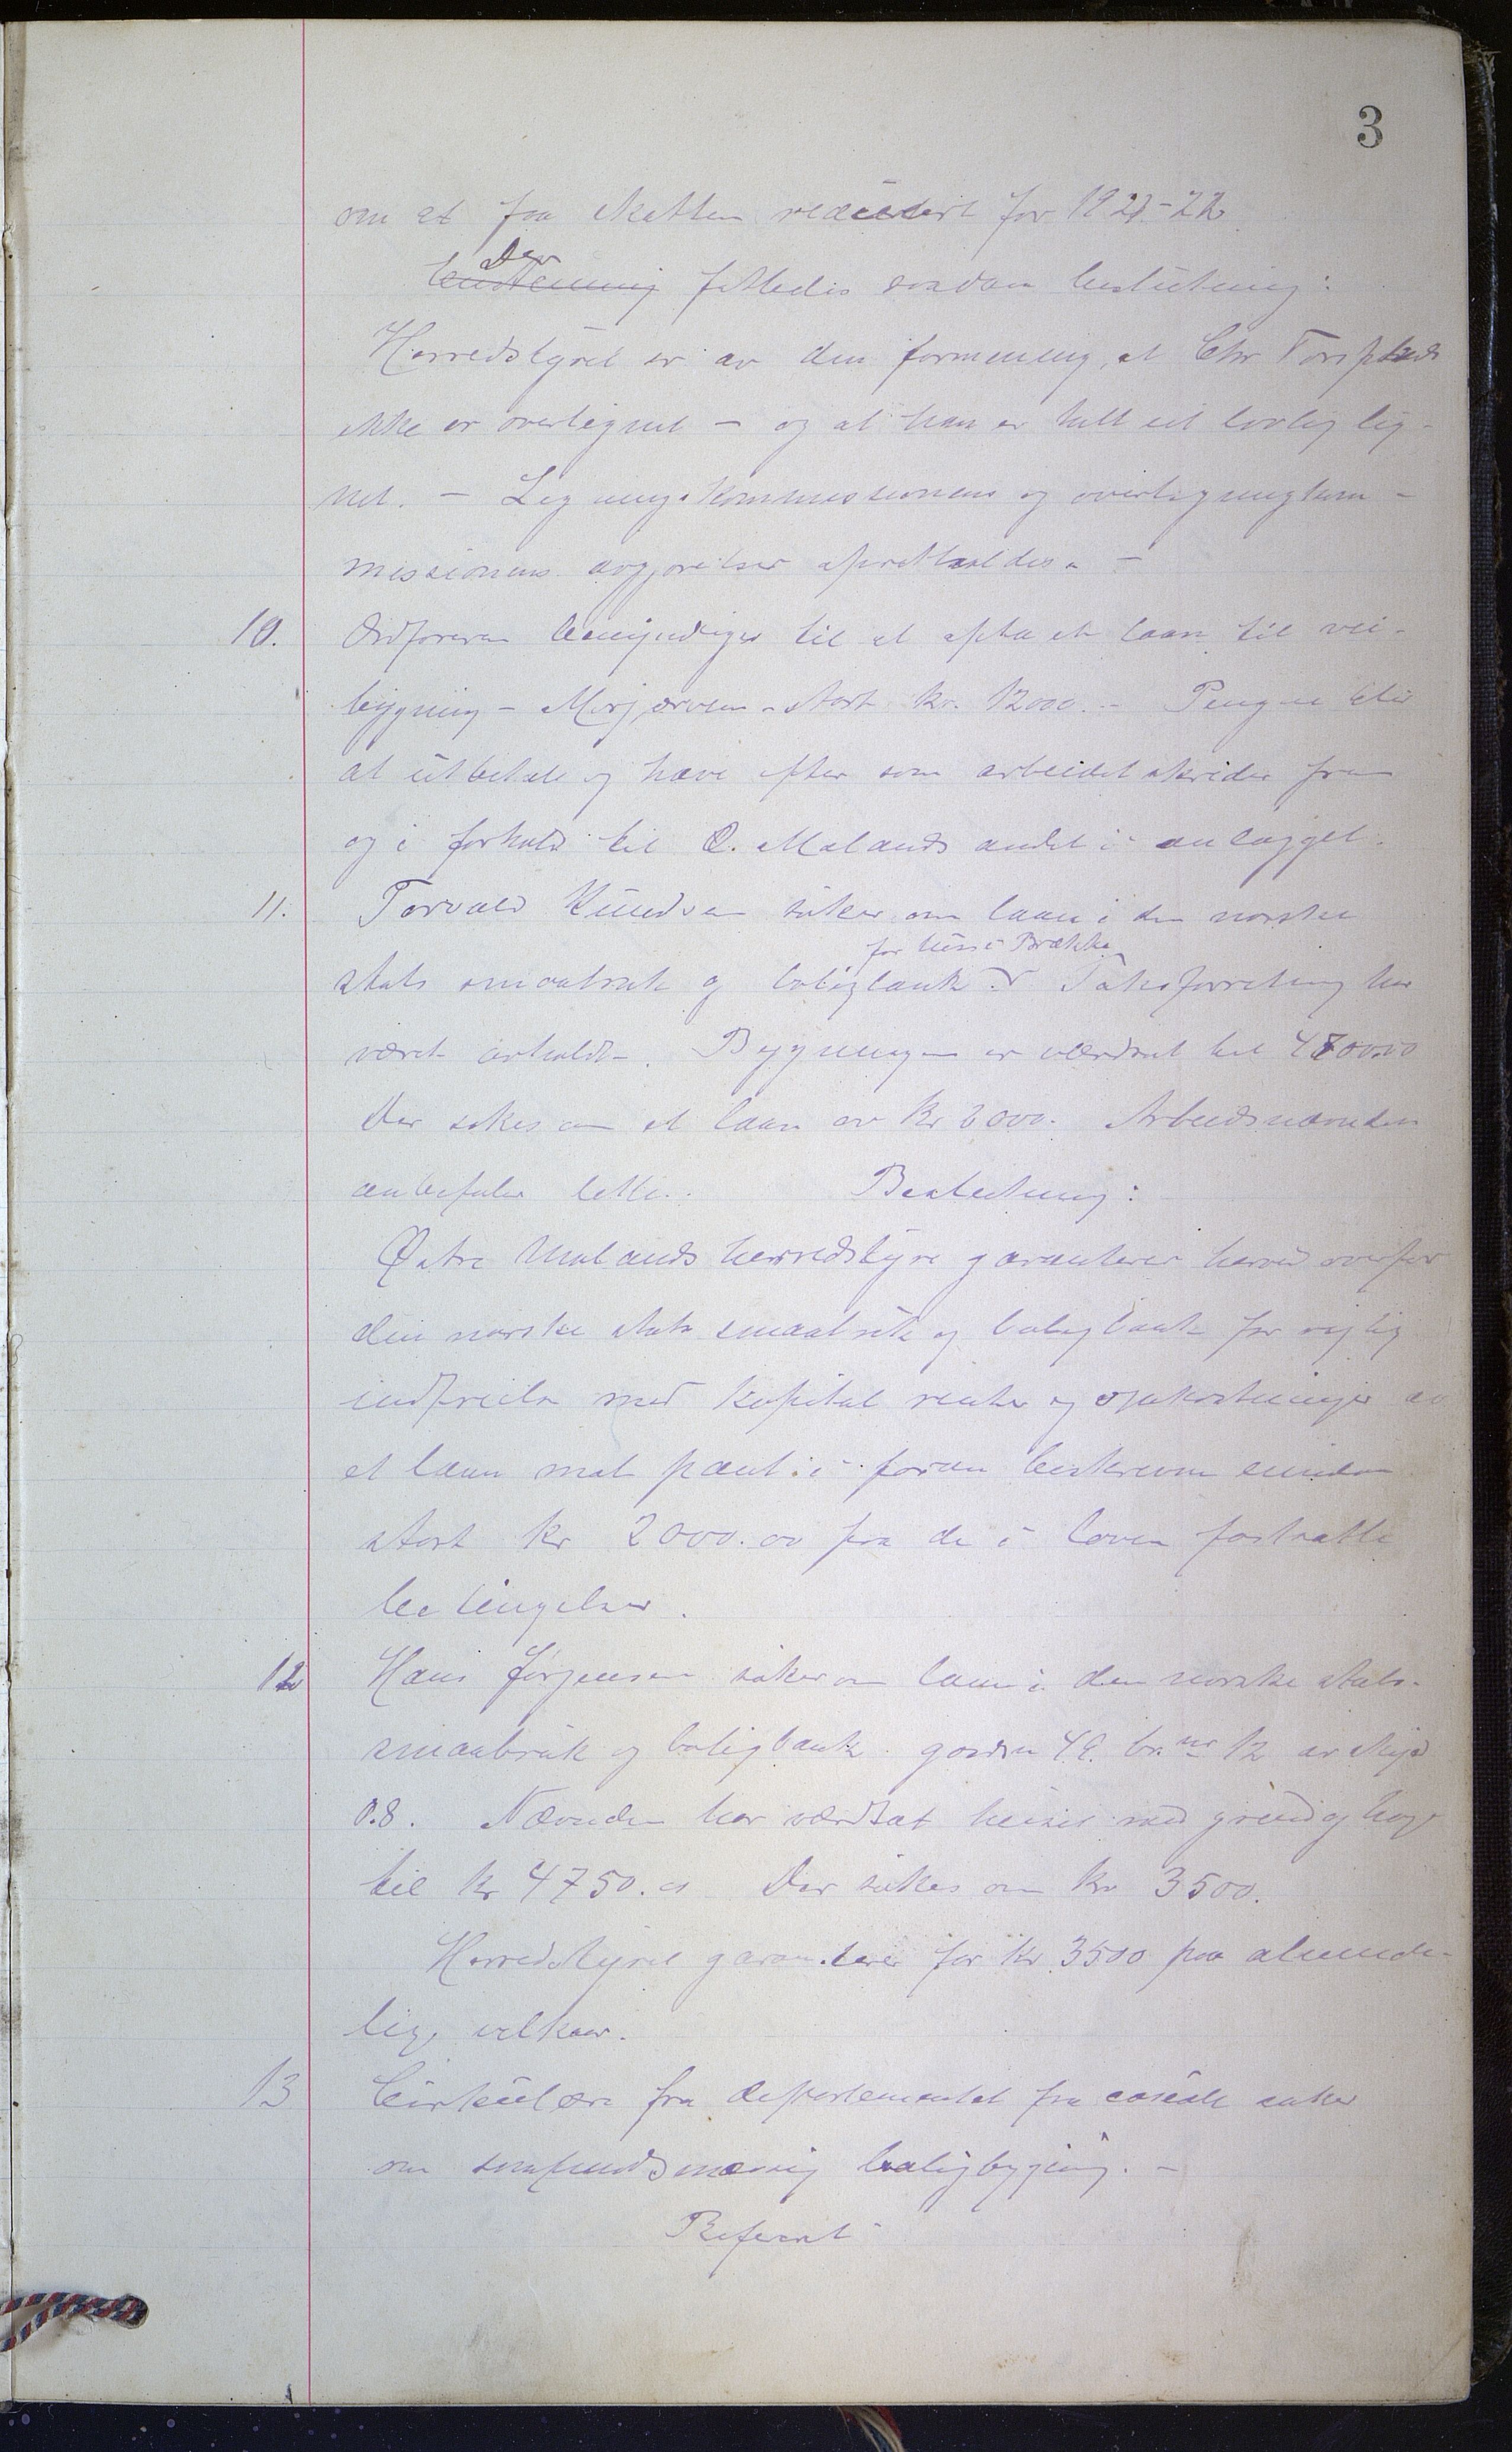 3
om at faa skatten reducert for 1921-22
Der
Beslutning fattedes saadan beslutning:
Herredstyret er av den formening, at Chr Torsplads
ikke er overlignet - og at han er helt ut lovlig lig-
net. - Ligningskommissionens og overligningskom-
missionens avgjørelser opretholdes. -
10. Ordføreren bemyndiges til at opta et laan til vei-
bygning - Morjærven - stort kr. 12000. - Pengene blir
at utbetale og hæve efter som arbeidet skrider frem
og i forhold til Ø. Molands andel i anlægget.
11. Torvald Knudsen søker om laan i den norske
for hus i Brække
stats smaabruk og boligbank. Takstforretning har
været avholdt. Bygningen er værdsat til 4800.00
Der søkes om et laan av kr 2000. Arbeidsnævnden
anbefaler dette. Beslutning:
Østre Molands herredstyre garanterer herved overfor
den norske stats smaabruk og boligbank for rigtig
indfrielse med kapital renter og omkostninger av
et laan mot pant i foran beskrevne eiendom
stort kr 2000.00 paa de i loven fastsatte
betingelser.
12 Hans Jørgensen søker om laan i den norske stats-
smaabruk og boligbank. gaardsn 49. br. nr 12 av skyld
0.8. Nævnden har værdsat huset med grund og have
til kr 4750.00 Der søkes om kr 3500.
Herredstyret garanterer for kr 3500 paa alminde-
lige vilkaar.
13 Cirkulære fra departementet for sociale saker
om samfundsmæssig boligbygging. -
Referat